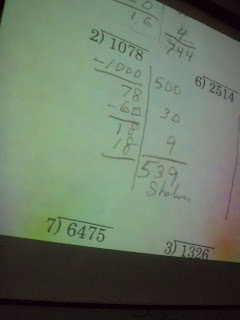 16
4
744
2) 1078
6) 2514
-1000 500
78
-60 30
18
18 9
539
7) 6475
3) 1326